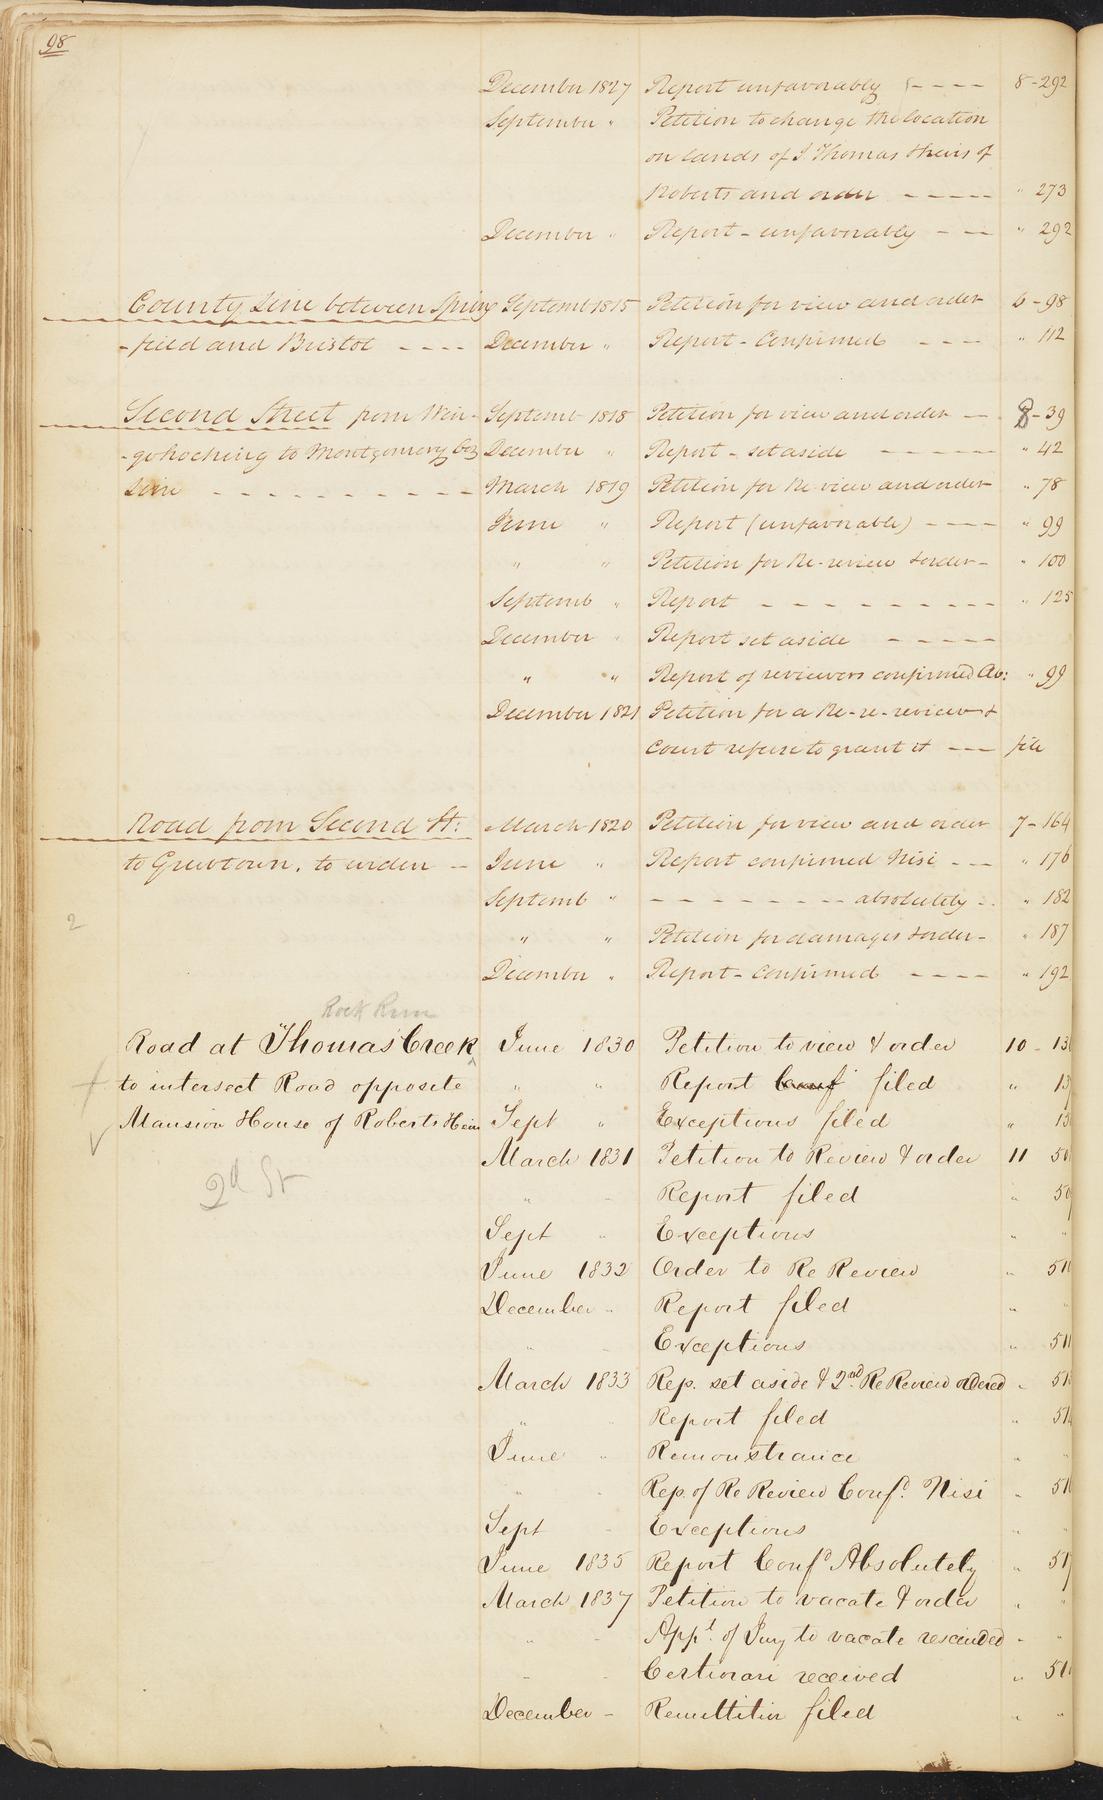 98
December 1827 Report unfavorably - - - - 8-292
September " Petition to change the location
on lands of J Thomas & heirs of
Roberts and order - - - - - " 273
December " Report - unfavorably - - - " 292
County Line between Spring Septemb 1815 Petition for view and order 6-98
-field and Bristol - - - - December " Report - Confirmed - - - - " 112
Second Street from Win- Septemb 1818 Petition for view and order - - 8-39
-gohocking to Montgomery Co. December " Report - set aside - - - - - - " 42
Line - - - - - - - - - - March 1819 Petition for Re view and order " 78
June " Report (unfavorable) - - - - " 99
" " Petition for Re-review & order - " 100
Septemb " Report - - - - - - - - - " 125
December " Report set aside - - - - -
" " Report of reviewers confirmed Ab: " 99
December 1821 Petition for a Re-re-review &
Court refuse to grant it - - - file
Road from Second St: March 1820 Petition for view and order 7-164
to Grubtown, to widen - - June " Report confirmed Nisi - - - " 176
Septemb " - - - - - - - - absolutely - - " 182
2
" " Petition for damages & order - " 187
December " Report - Confirmed - - - - " 192
Rock Run
Road at Thomas' Creek June 1830 Petition to view & order 10 - 13
to intersect Road opposite " " Report Conf filed " 13
Mansion House of Roberts Heirs Sept " Exceptions filed " 13
March 1831 Petition to Review & order 11 50
2d St
" - Report filed " 50
Sept " Exceptions " "
June 1832 Order to Re Review " 51
December " Report filed " "
" - Exceptions " 51
March 1833 Rep. set aside & 2nd Re Review ordered - 51
" " Report filed " 51
June " Remonstrance " "
" - Rep. of Re Review Confd. Nisi " 51
Sept - Exceptions " "
June 1835 Report Confd Absolutely " 51
March 1837 Petition to vacate & order " "
" - Appt. of Jury to vacate rescinded - "
- - Certiorari received " 51
December - Remittitur filed " "